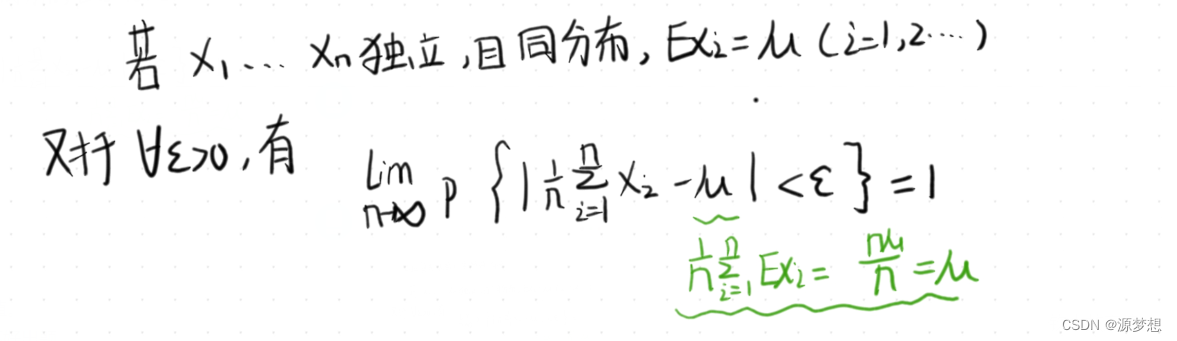 若 X₁ ... Xn独立,且同分布, EXi=μ (i=1,2...)
对于 ∀ε>0, 有 lim n→∞ P { | 1/n Σ i=1 n Xi - μ | < ε } = 1
1/n Σ i=1 n EXi = nμ/n = μ
CSDN @源梦想